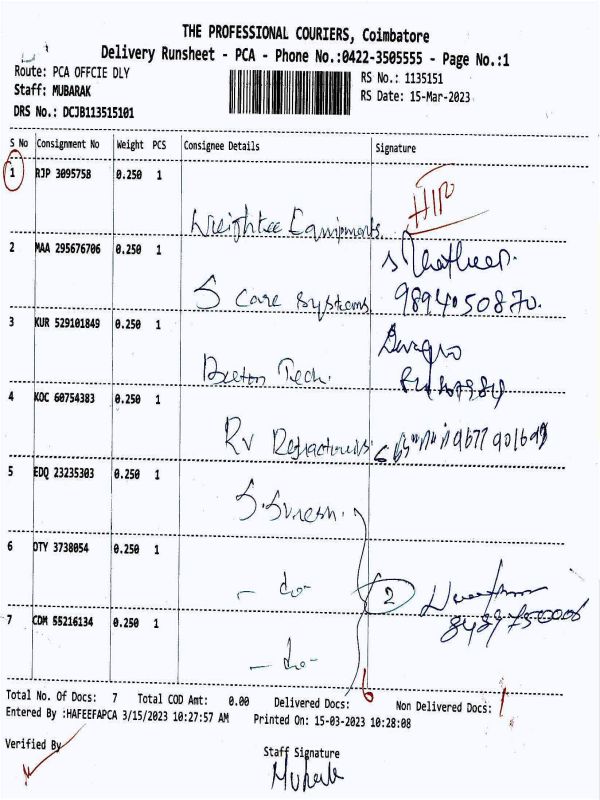 THE PROFESSIONAL COURIERS, Coimbatore
Delivery Runsheet - PCA - Phone No.:0422-3505555 - Page No.:1
Route: PCA OFFCIE DLY
RS No.: 1135151
Staff: MUBARAK
RS Date: 15-Mar-2023
DRS No.: DCJB113515101
S No Consignment No Weight PCS Consignee Details Signature
1 RJP 3095758 0.250 1
Weightee Equipments
2 MAA 295676706 0.250 1
S Care Systems 9894050870.
3 KUR 529101849 0.250 1
Tech.
4 KOC 60754383 0.250 1
RV
5 EDQ 23235303 0.250 1
S. Suresh.
6 OTY 3738054 0.250 1
- do- 2
7 COM 55216134 0.250 1
- do-
Total No. Of Docs: 7 Total COD Amt: 0.00 Delivered Docs: 6 Non Delivered Docs: 1
Entered By :HAFEEFAPCA 3/15/2023 10:27:57 AM Printed On: 15-03-2023 10:28:08
Verified By
Staff Signature